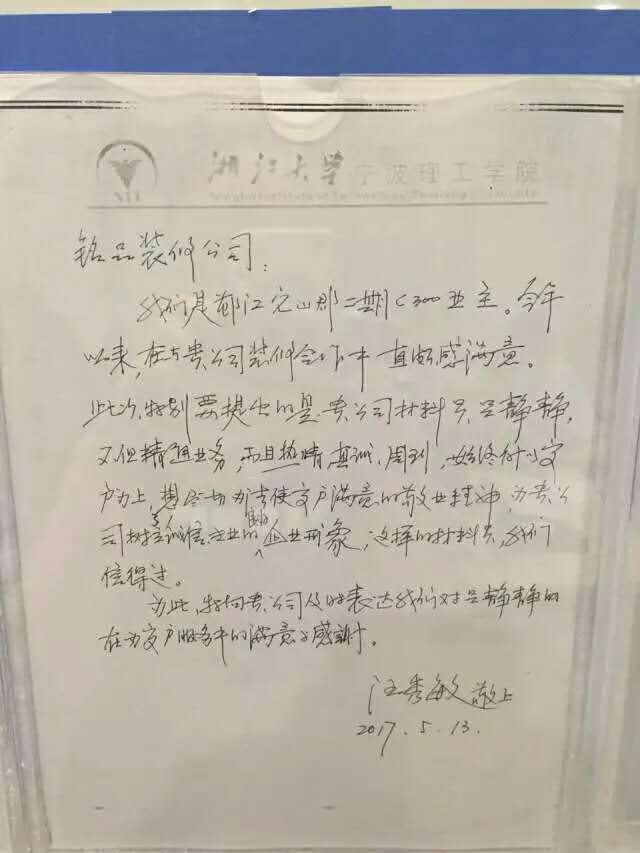 浙江大学宁波理工学院
铭品装修公司:
我们是鄞江完山郡二期C300业主。今年
以来,在与贵公司装修合作中直颇感满意。
此次,特别要提出的是贵公司材料员吕静静,
不但精通业务,而且热情真诚、周到,始终体现客
户为上,想尽一切办法使客户满意的敬业精神,为贵公
司树立诚信立业的企业形象,这样的材料员,我们
信得过。
为此,特向贵公司及时表达我们对吕静静的
在为客户服务中的满意与感谢。
汪秀敏 敬上
2017.5.13.